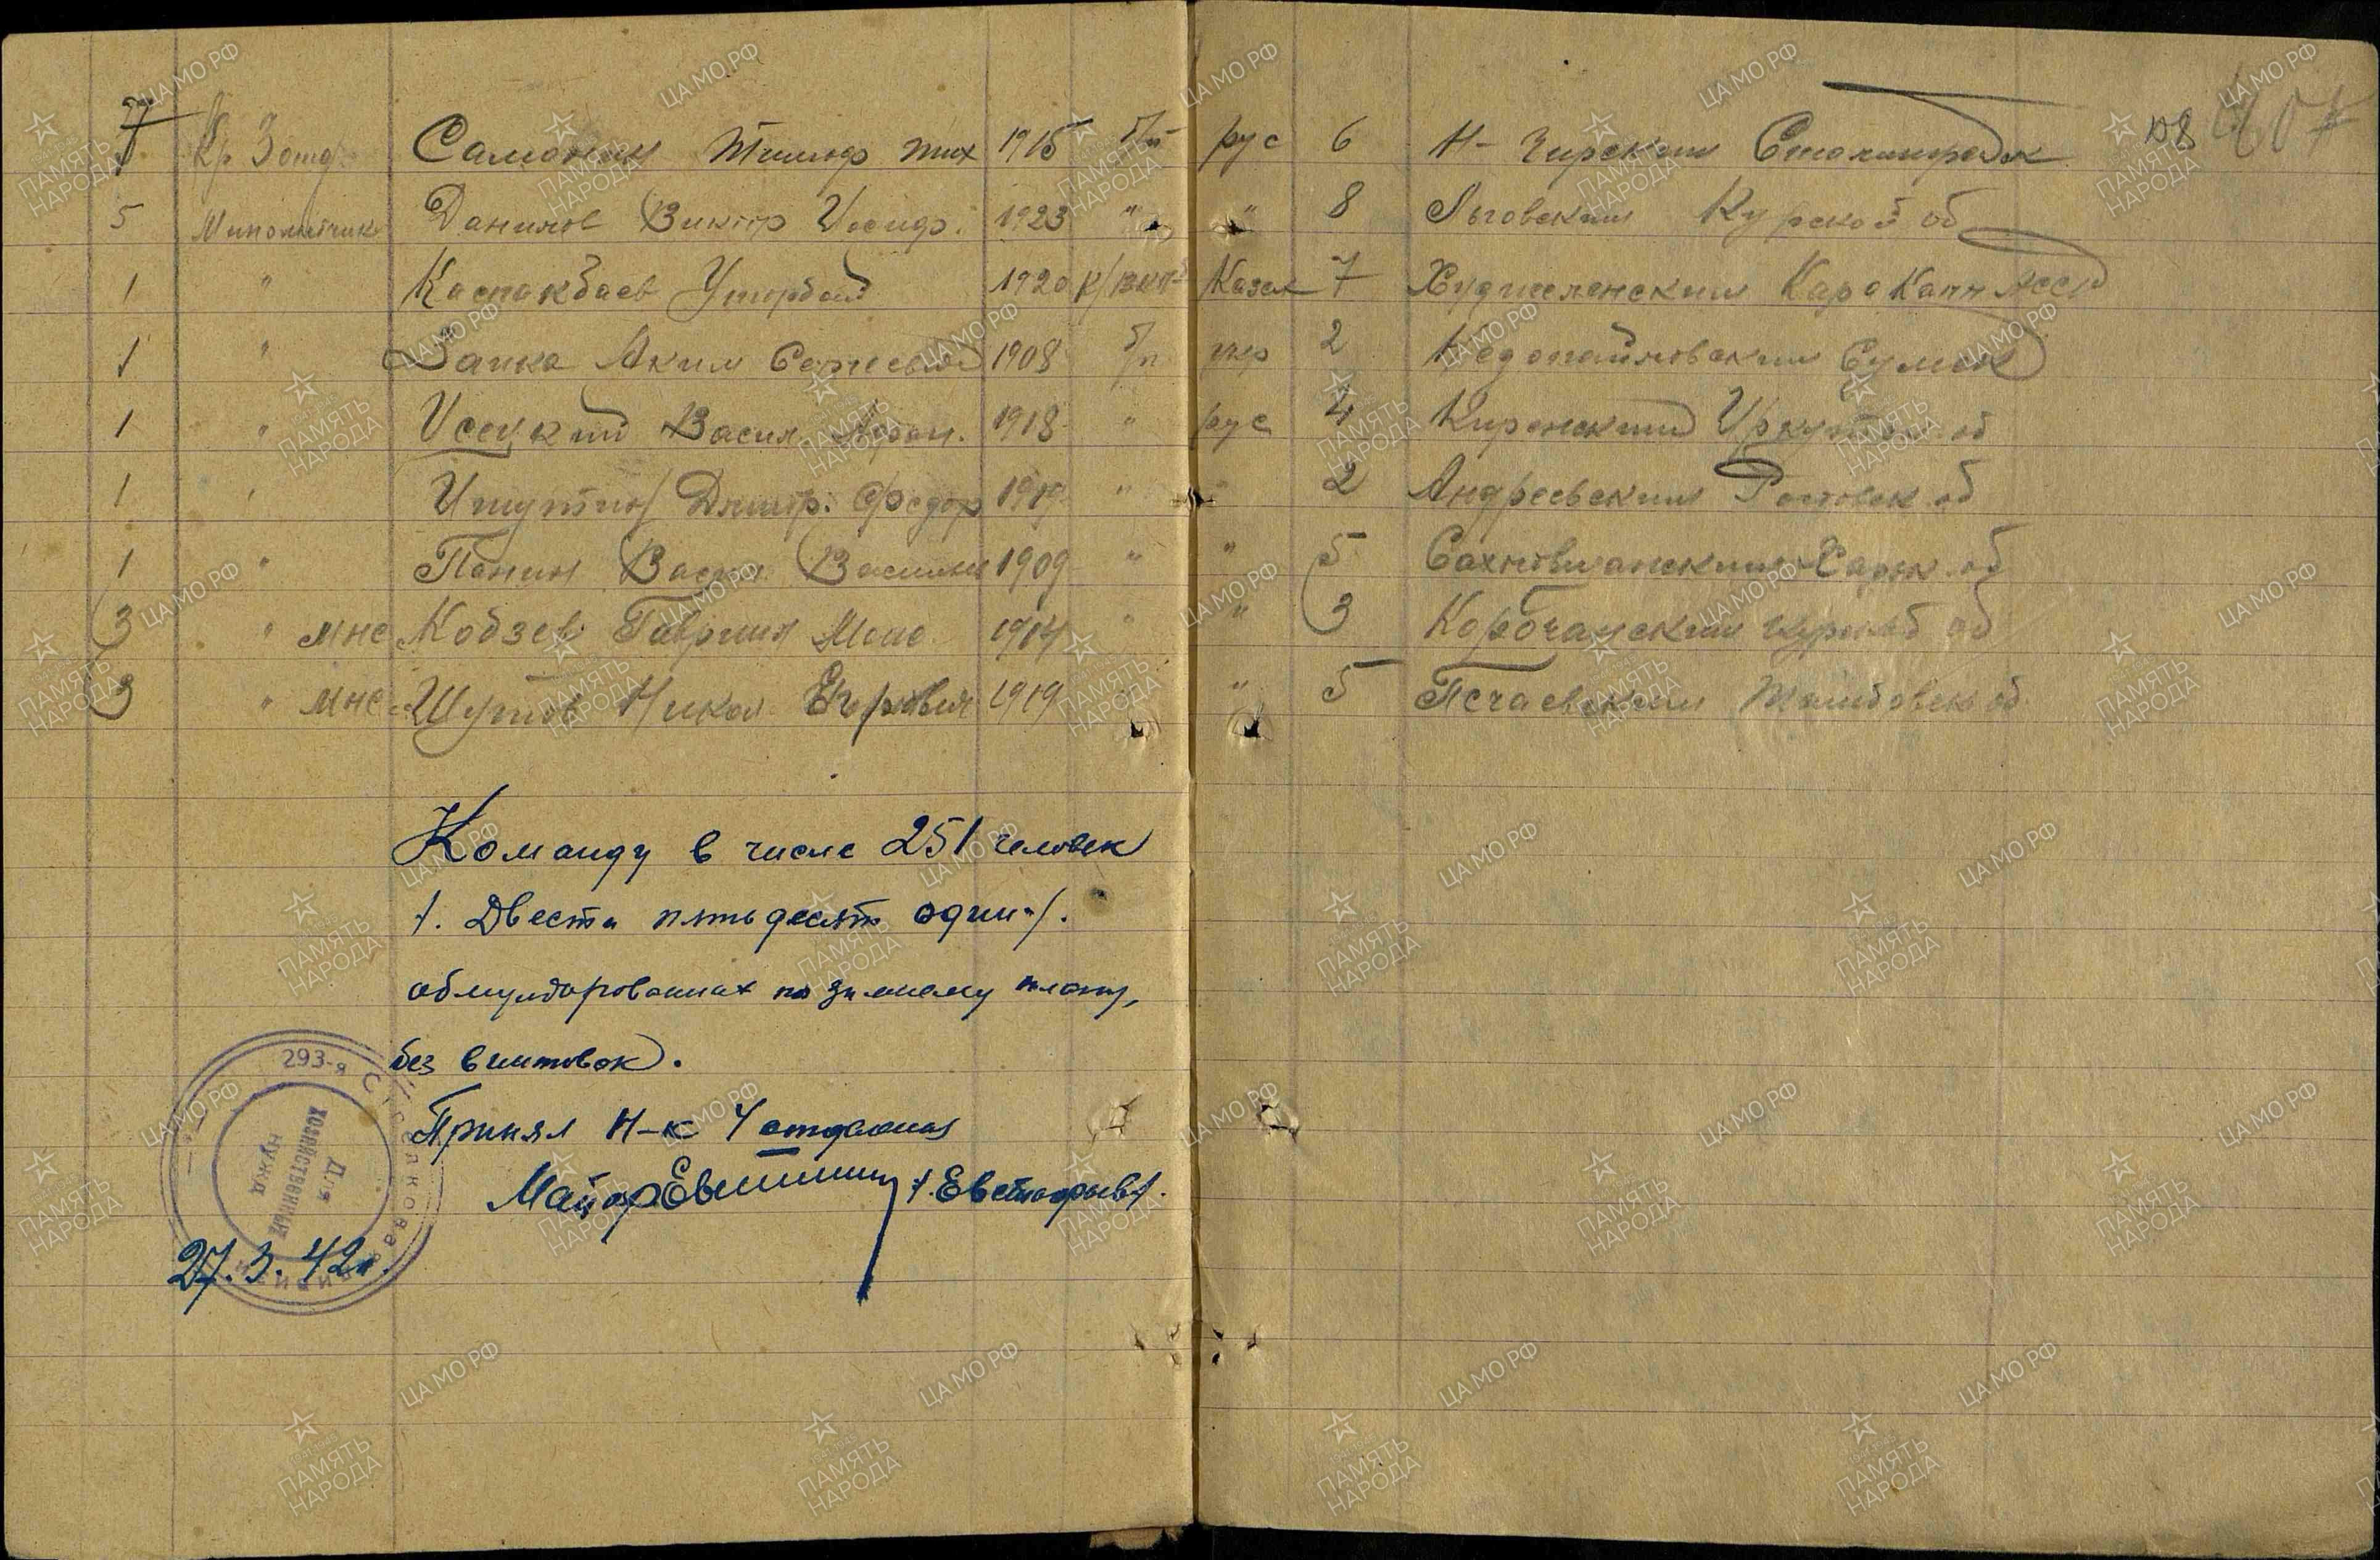 108 107
7 Кр 3 отд. Самохин Тимоф Тих 1915 б/п рус 6 Н-Чирский Сталинградск
5 Минометчик Данилов Виктор Иосиф. 1923 " " 8 Льговский Курской об
1 " Каспакбаев 1920 к/вкп Казак 7 Кара Калп АССР
1 " Заика Аким Сергеевич 1908 б/п укр 2 Сумск
1 " Исецкий Васил Афан. 1918 " рус 4 Киренский Иркутск об
1 " Ишутин Дмитр. Федор 1919 " " 2 Андреевский Ростовск об
1 " Панин Васил Василье 1909 " " 5 об
3 " мнс Кобзев Гавриил 1914 " " 3 Корочанский Курской об
3 " мнс Шутов Никол Егорович 1919 " " 5 Пичаевский Тамбовск об
Команду в числе 251 человек
/. Двести пятьдесят один/.
обмундированных по зимнему плану,
без винтовок.
Принял Н-к 4 отделения
Майор /.Евстафьев/.
293-я Стрелковая дивизия
Для хозяйственных нужд
27.3.42г.